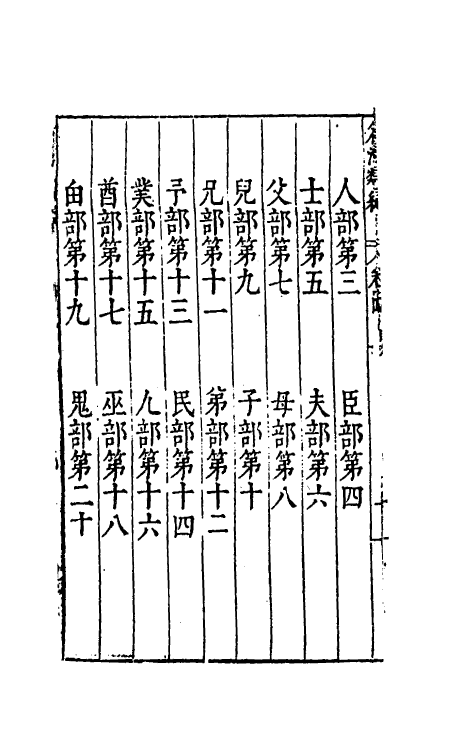 人部第三　臣部第四
士部第五　夫部第六
父部第七　母部第八
兒部第九　子部第十
兄部第十一　弟部第十二
予部第十三　民部第十四
菐部第十五　儿部第十六
酋部第十七　巫部第十八
甶部第十九　鬼部第二十